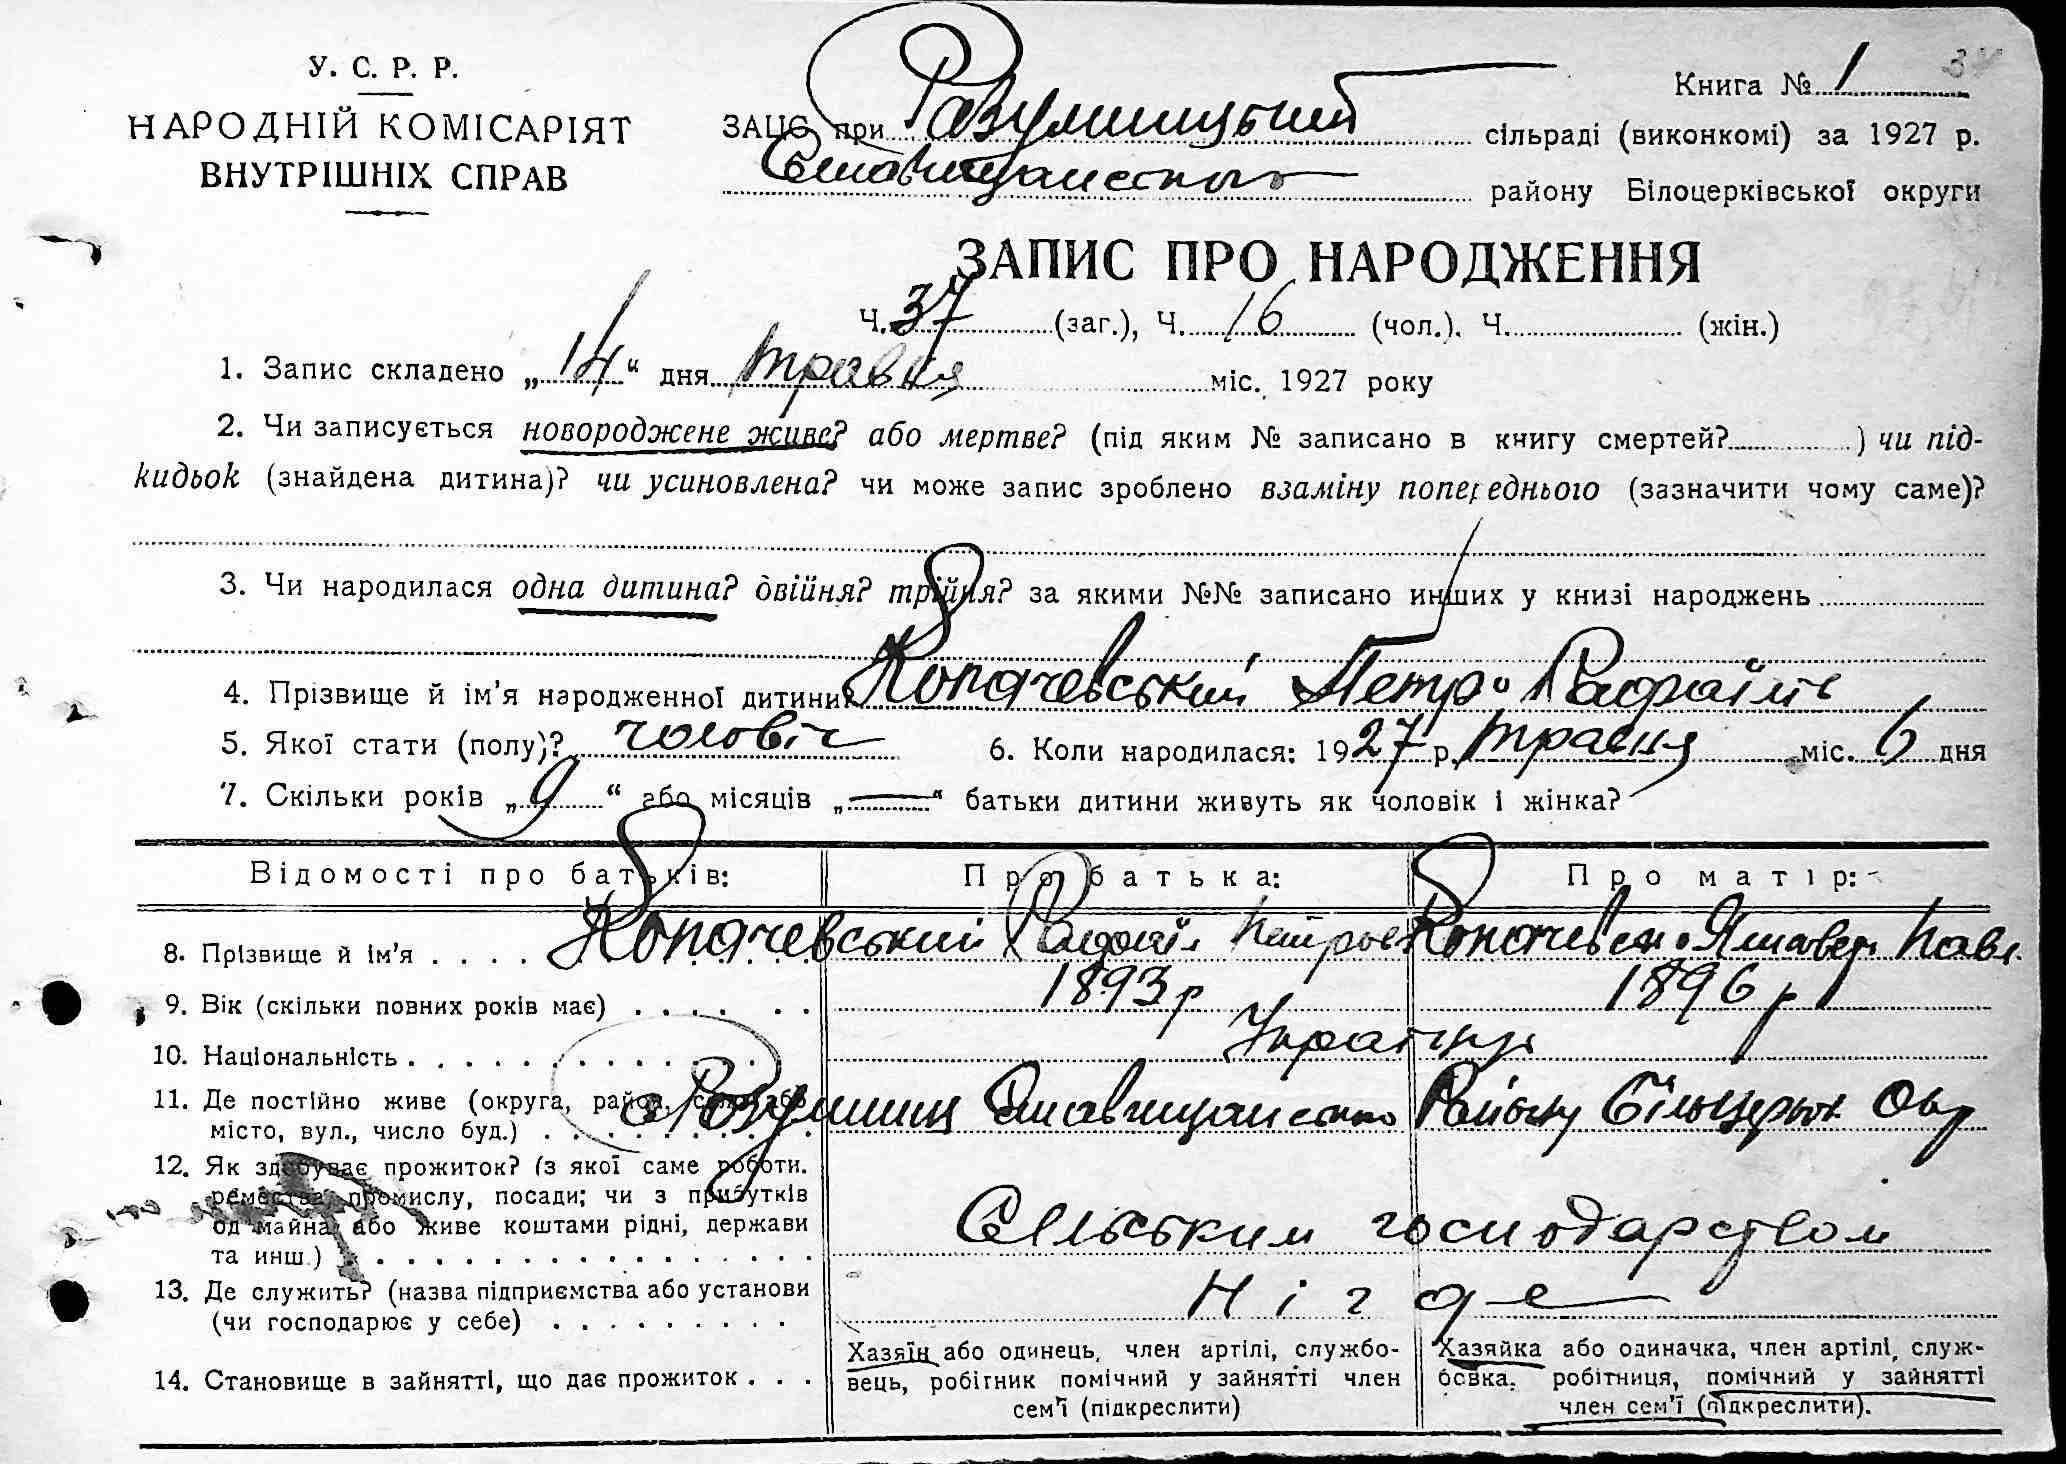 У. С. Р. Р.
НАРОДНІЙ КОМІСАРІЯТ
ВНУТРІШНІХ СПРАВ
Книга № 1
ЗАЦС при Розумницький сільраді (виконкомі) за 1927 р.
Ставищанського району Білоцерківської округи
ЗАПИС ПРО НАРОДЖЕННЯ
Ч. 37 (заг.), Ч. 16 (чол.). Ч. (жін.)
1. Запис складено „14“ дня травня міс. 1927 року
2. Чи записується новороджене живе? або мертве? (під яким № записано в книгу смертей? ) чи під-
кидьок (знайдена дитина)? чи усиновлена? чи може запис зроблено взаміну попереднього (зазначити чому саме)?
3. Чи народилася одна дитина? двійня? трійня? за якими №№ записано инших у книзі народжень
4. Прізвище й ім'я народженної дитини? Копачевський Петро Рафаїлів
5. Якої стати (полу)? чоловіч 6. Коли народилася: 1927 р. травня міс. 6 дня
7. Скільки років „9“ або місяців „—“ батьки дитини живуть як чоловік і жінка?
Відомості про батьків: Про батька: Про матір:
8. Прізвище й ім'я . . . . Копачевський Рафаїл Петров Копачевськ Павл.
9. Вік (скільки повних років має) . . . . . . 1893 р 1896 р
10. Національність . . . . . . . . . . . . . . Українці
11. Де постійно живе (округа, район, село або
місто, вул., число буд.) . . . . . . . . . . с Розумниці Ставищанського Району Білоцерків Окр
12. Як здобуває прожиток? (з якої саме роботи.
ремества, промислу, посади; чи з прибутків
од майна; або живе коштами рідні, держави
та инш.) . . . . . . . . . . . . . . . . . . Сільським господарством
13. Де служить? (назва підприємства або установи
(чи господарює у себе) . . . . . . . . . нігде
14. Становище в зайнятті, що дає прожиток . . .
Хазяїн або одинець, член артілі, службо-
вець, робітник помічний у зайнятті член
сем'ї (підкреслити)
Хазяйка або одиначка, член артілі, служ-
бовка, робітниця, помічний у зайнятті
член сем'ї (підкреслити).